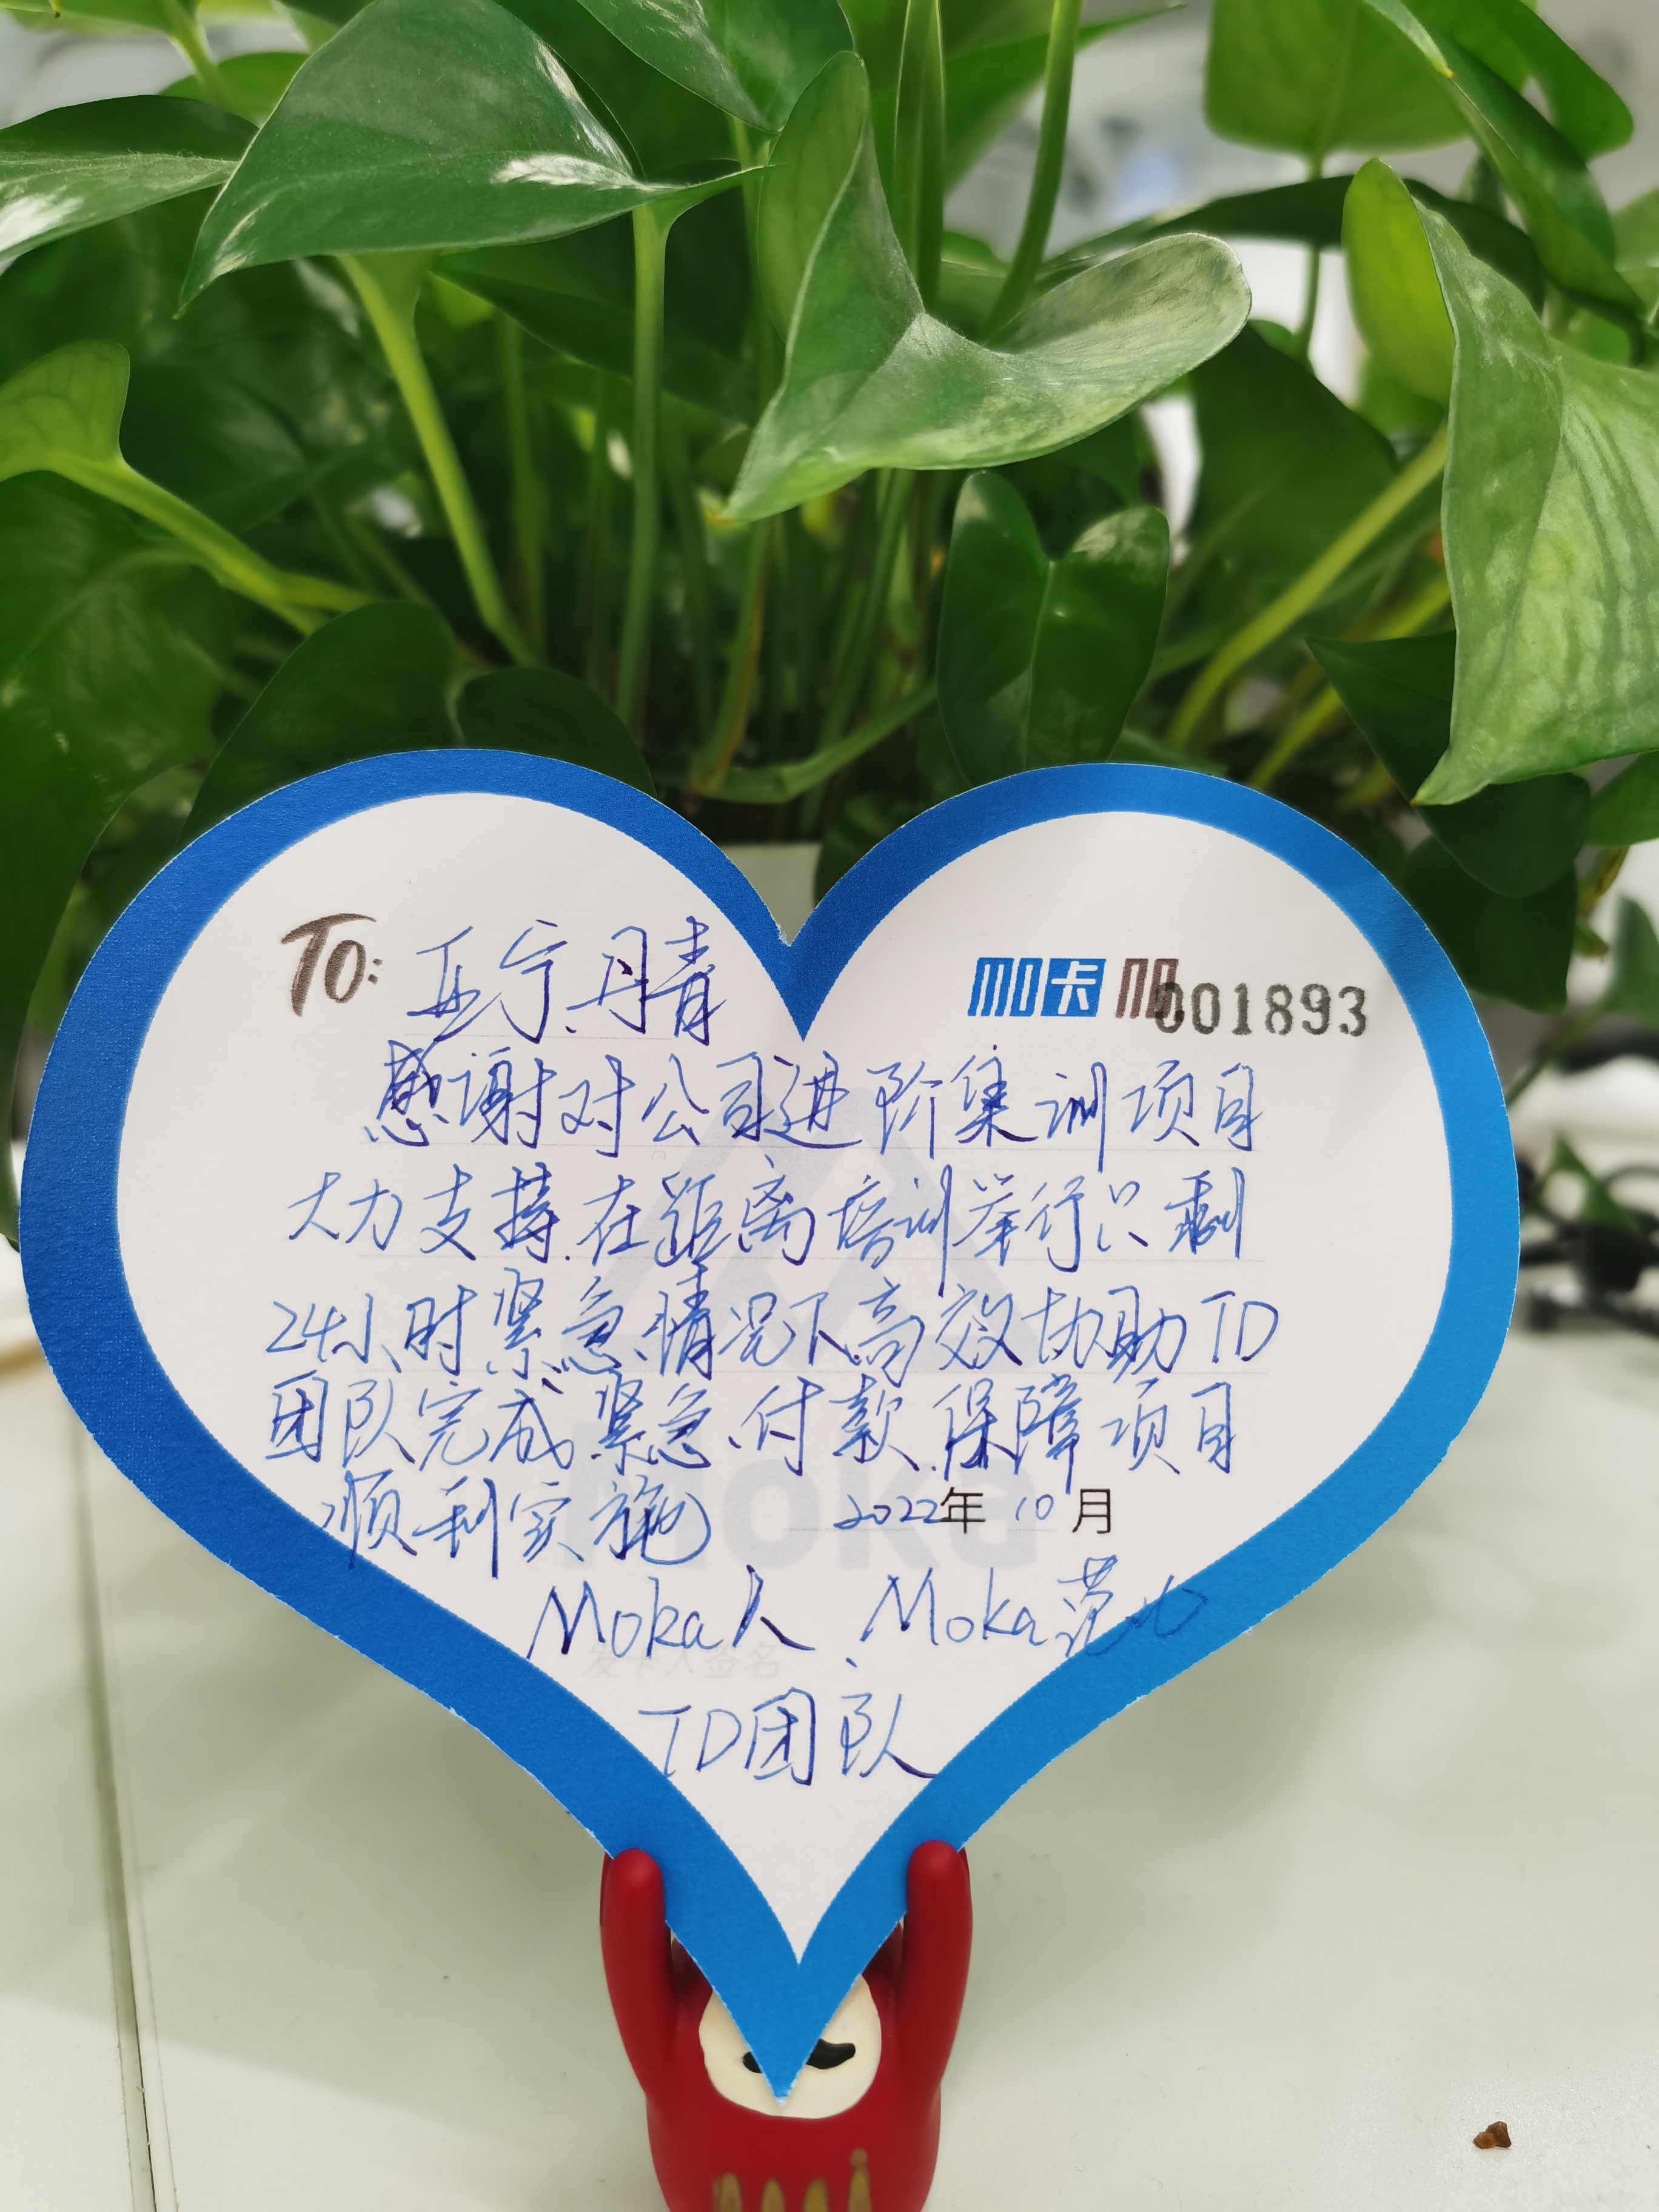 To: 亚宁、丹青
加卡 001893
感谢对公司进阶集训项目
大力支持.在距离培训举行只剩
24小时紧急情况下高效协助TD
团队完成紧急付款.保障项目
顺利实施
2022年 10 月
Moka人、Moka范儿
发卡人签名
TD团队
Moka